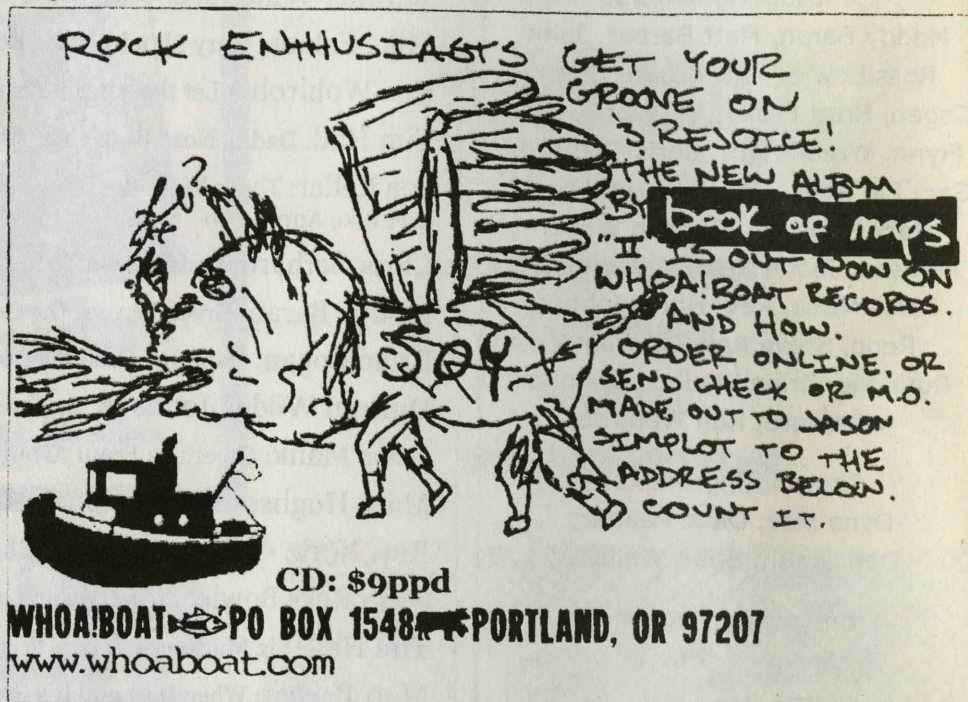 ROCK ENTHUSIASTS GET YOUR
GROOVE ON
& REJOICE!
THE NEW ALBUM
BY book of maps
"II" IS OUT NOW ON
WHOA!BOAT RECORDS.
AND HOW.
ORDER ONLINE, OR
SEND CHECK OR M.O.
MADE OUT TO JASON
SIMPLOT TO THE
ADDRESS BELOW.
COUNT IT!
CD: $9ppd
WHOA!BOAT PO BOX 1548 PORTLAND, OR 97207
www.whoaboat.com